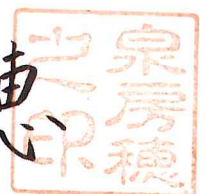 泉房穂
之印
恵